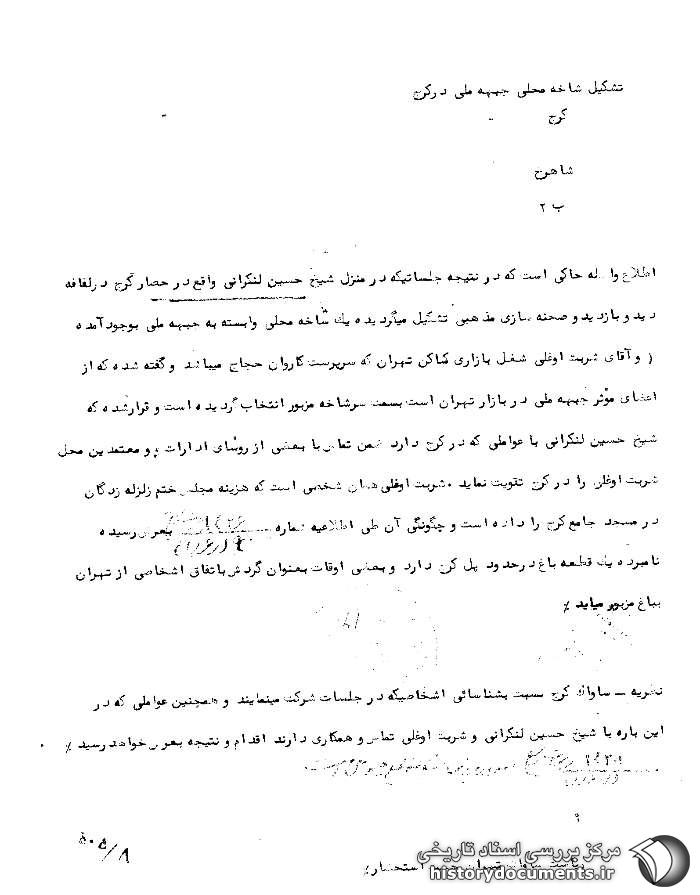 تشکیل شاخه محلی جبهه ملی در کرج
کرج
شاهرخ
ب ۲
اطلاع واصله حاکی است که در نتیجه جلساتیکه در منزل شیخ حسین لنکرانی واقع در حصار کرج در لفافه
دید و بازدید و صحنه سازی مذهبی تشکیل میگردیده یک شاخه محلی وابسته به جبهه ملی بوجود آمده
و آقای شربت اوغلی شغل بازاری ساکن تهران که سرپرست کاروان حجاج میباشد و گفته شده که از
اعضای مؤثر جبهه ملی در بازار تهران است بسمت سرشاخه مزبور انتخاب گردیده است و قرار شده که
شیخ حسین لنکرانی با عواملی که در کرج دارد ضمن تماس با بعضی از رؤسای ادارات و معتمدین محل
شربت اوغلی را در کرج تقویت نماید . شربت اوغلی همان شخصی است که هزینه مجلس ختم زلزله زدگان
در مسجد جامع کرج را داده است و چگونگی آن طی اطلاعیه شماره بعرض رسیده
نامبرده یک قطعه باغ در حدود پل کرج دارد و بعضی اوقات بعنوان گردش باتفاق اشخاصی از تهران
بباغ مزبور میاید ٪
نظریه ـ ساواک کرج نسبت بشناسائی اشخاصیکه در جلسات شرکت مینمایند و همچنین عواملی که در
این باره با شیخ حسین لنکرانی و شربت اوغلی تماس و همکاری دارند اقدام و نتیجه بعرض خواهد رسید ٪
۵۰۵/۸
استحضار٪
مرکز بررسی اسناد تاریخی
historydocuments.ir